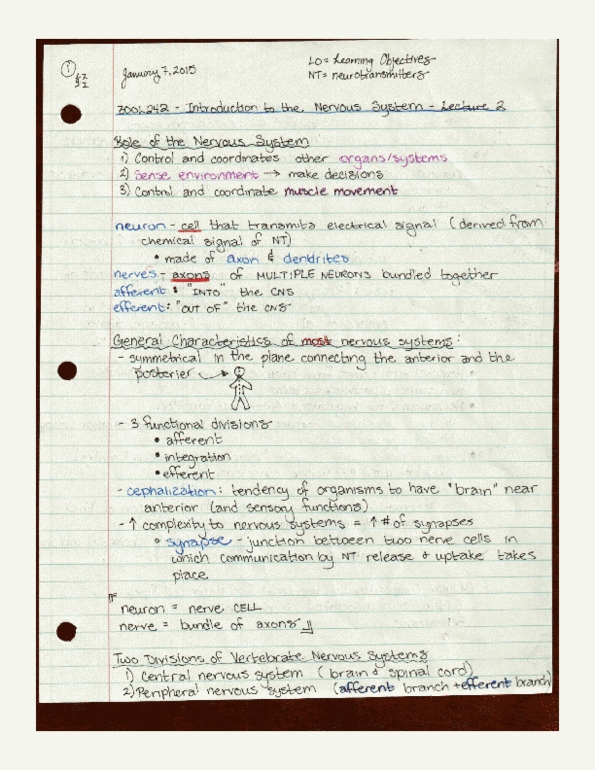 1
January 7, 2015
LO = Learning Objectives
NT = neurotransmitters
ZOOL242 - Introduction to the Nervous System - Lecture 2
Role of the Nervous System
1) Control and coordinates other organs/systems
2) Sense environment → make decisions
3) Control and coordinate muscle movement
neuron - cell that transmits electrical signal (derived from
chemical signal of NT)
• made of axon & dendrites
nerves - axons of MULTIPLE NEURONS bundled together
afferent: "INTO" the CNS
efferent: "OUT OF" the CNS
General Characteristics of most nervous systems:
- symmetrical in the plane connecting the anterior and the
posterior
- 3 functional divisions
• afferent
• integration
• efferent
- cephalization: tendency of organisms to have "brain" near
anterior (and sensory functions)
- ↑ complexity to nervous systems = ↑ # of synapses
• synapse - junction between two nerve cells in
which communication by NT release & uptake takes
place.
neuron = nerve CELL
nerve = bundle of axons
Two Divisions of Vertebrate Nervous Systems
1) Central nervous system (brain & spinal cord)
2) Peripheral nervous system (afferent branch + efferent branch)